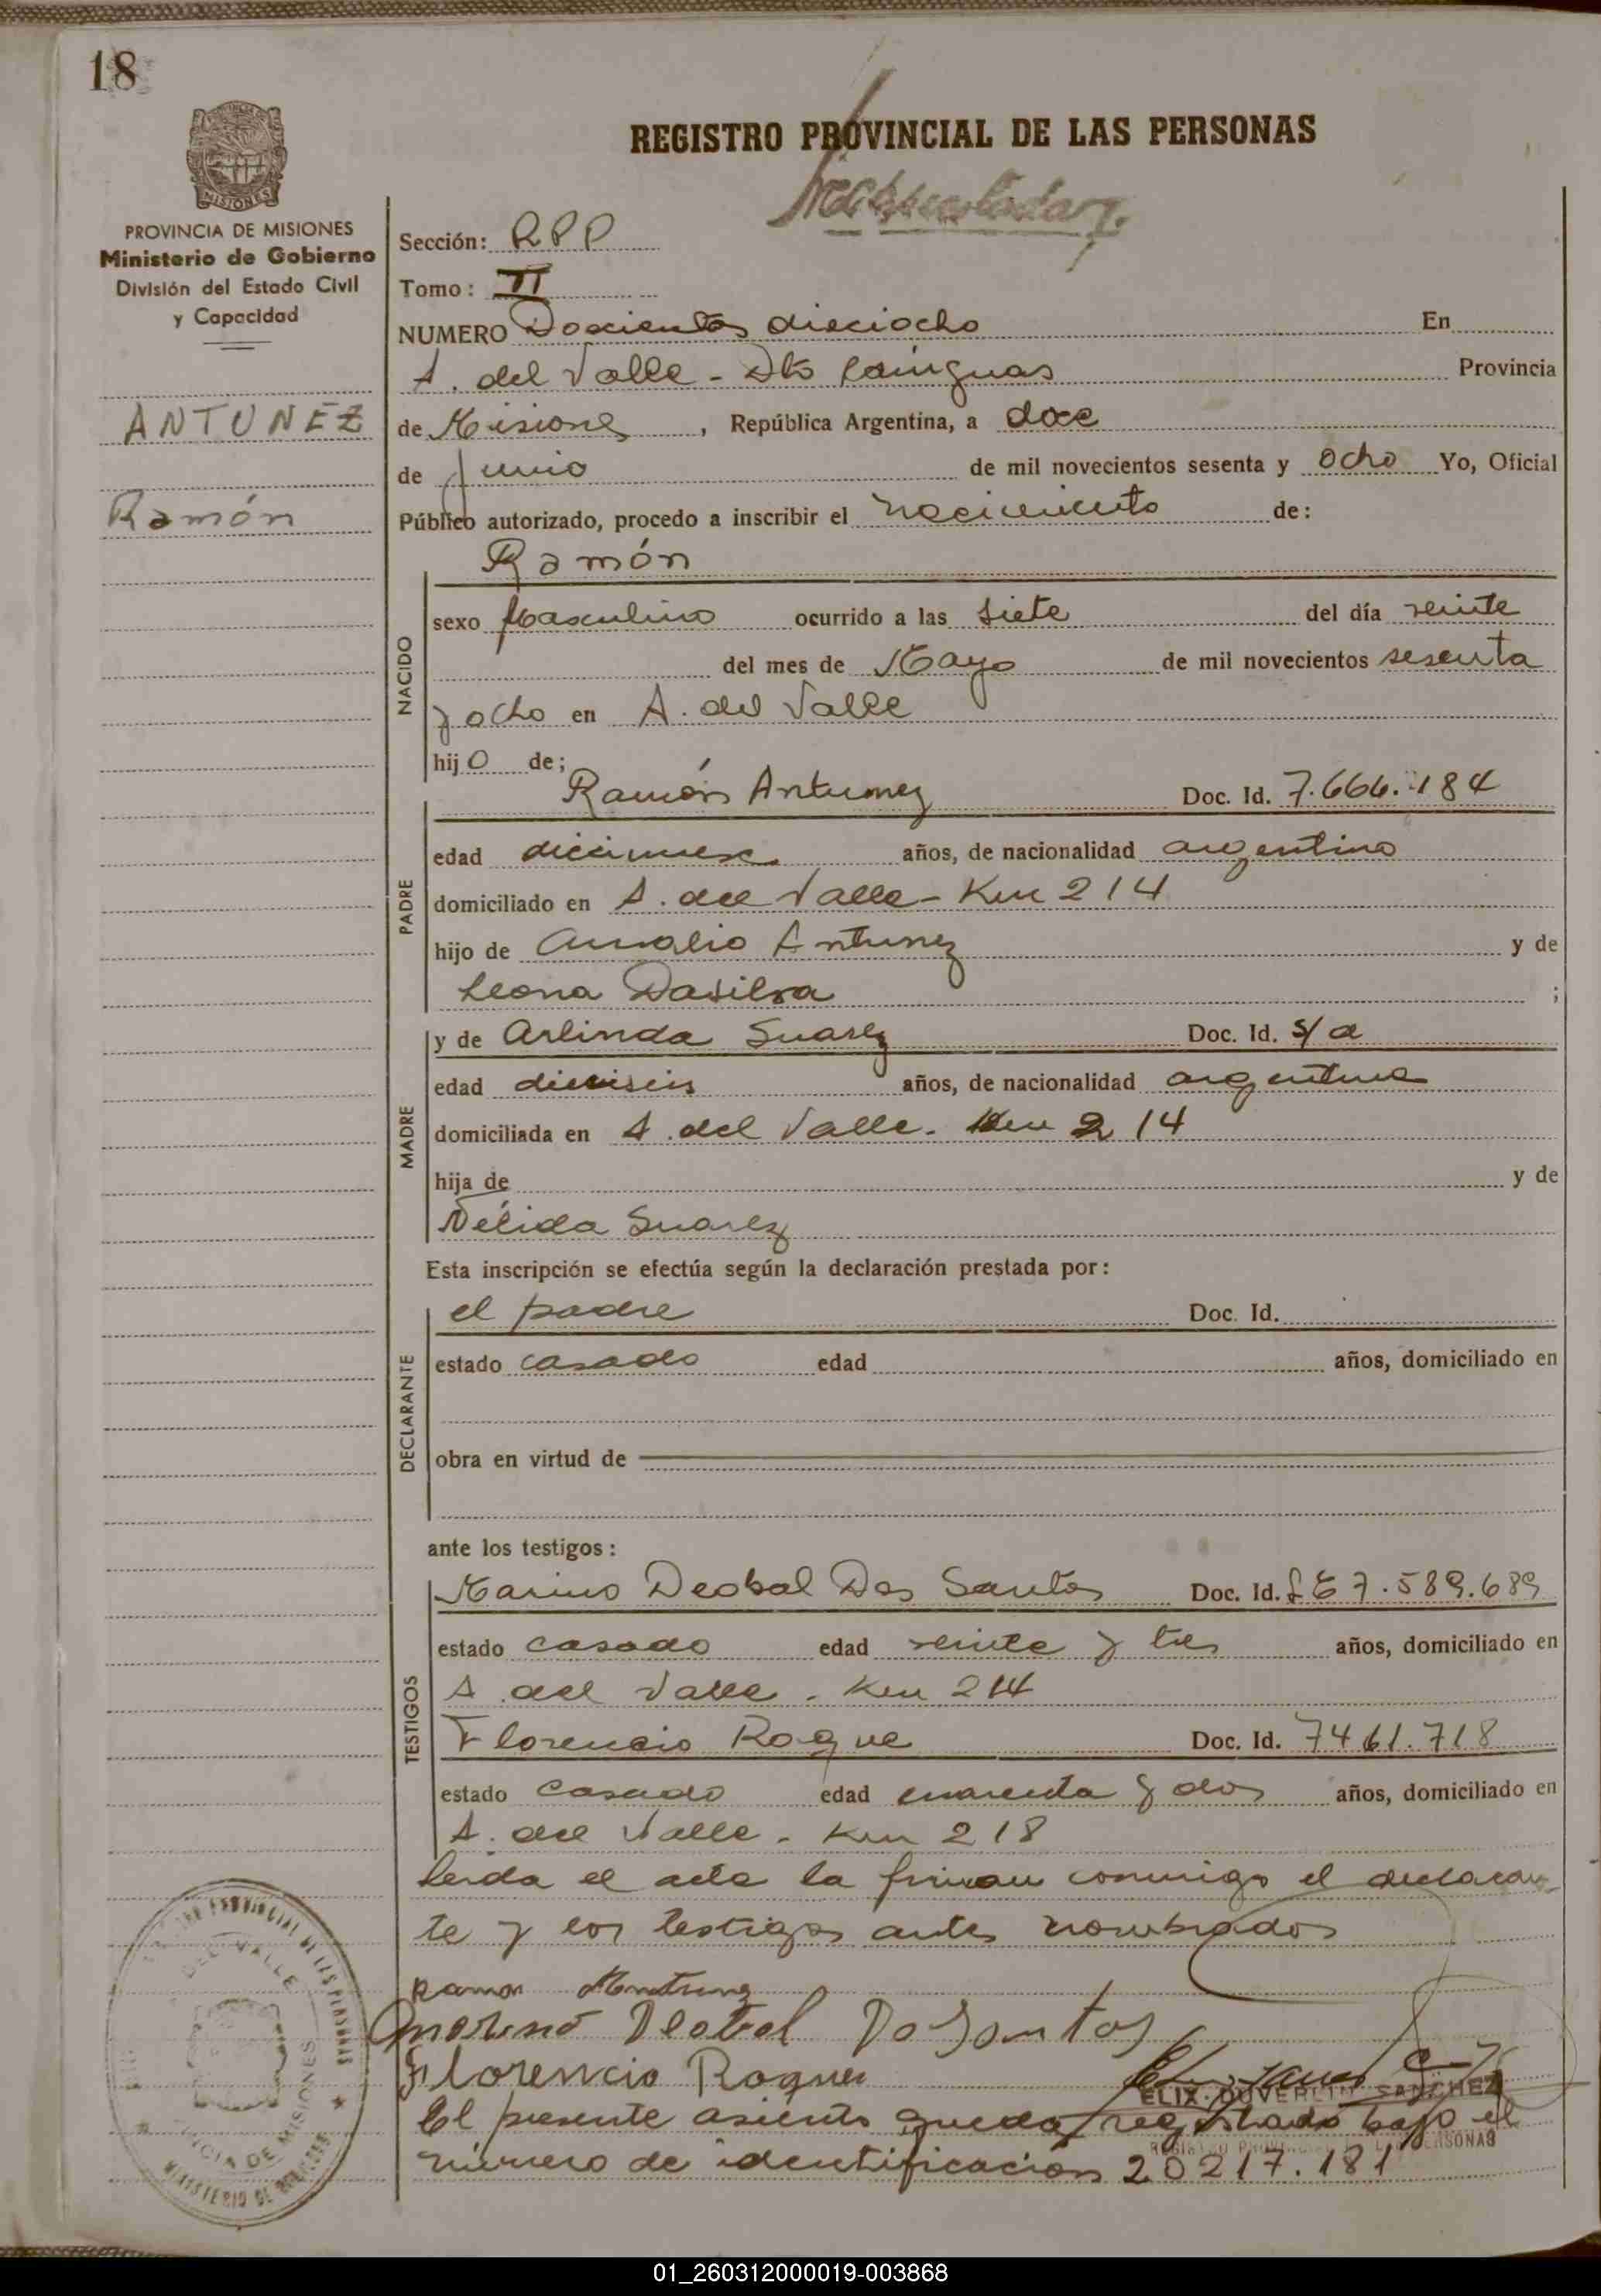 18
REGISTRO PROVINCIAL DE LAS PERSONAS
MISIONES
PROVINCIA DE MISIONES
Ministerio de Gobierno
División del Estado Civil
y Capacidad
ANTUNEZ
Ramón
Sección: RPP
Tomo: II
NUMERO Doscientos dieciocho En
A. del Valle - Dto Cainguas Provincia
de Misiones, República Argentina, a doce
de junio de mil novecientos sesenta y ocho Yo, Oficial
Público autorizado, procedo a inscribir el nacimiento de:
Ramón
NACIDO
sexo Masculino ocurrido a las siete del día veinte
del mes de Mayo de mil novecientos sesenta
y ocho en A. del Valle
hijo de;
PADRE
Ramón Antunez Doc. Id. 7.666.184
edad años, de nacionalidad argentino
domiciliado en A. del Valle - Km 214
hijo de Antunez y de
Leona Dasilva ;
MADRE
y de Arlinda Suarez Doc. Id. s/d
edad dieciseis años, de nacionalidad argentina
domiciliada en A. del Valle. Km 214
hija de y de
Nélida Suarez
Esta inscripción se efectúa según la declaración prestada por:
DECLARANTE
el padre Doc. Id.
estado casado edad años, domiciliado en
obra en virtud de
ante los testigos:
TESTIGOS
Marino Deobal Dos Santos Doc. Id. 7.589.689
estado casado edad veinte y tres años, domiciliado en
A. del Valle. Km 214
Florencio Roque Doc. Id. 7461.718
estado casado edad cuarenta y dos años, domiciliado en
A. del Valle. Km 218
Leida el acta la firman conmigo el declaran-
te y los testigos antes nombrados
Ramon Antunez
Deobal Do Santos
Florencio Roque
SANCHEZ
El presente asiento queda registrado bajo el
número de identificación 20217.181
DEL VALLE
01_260312000019-003868